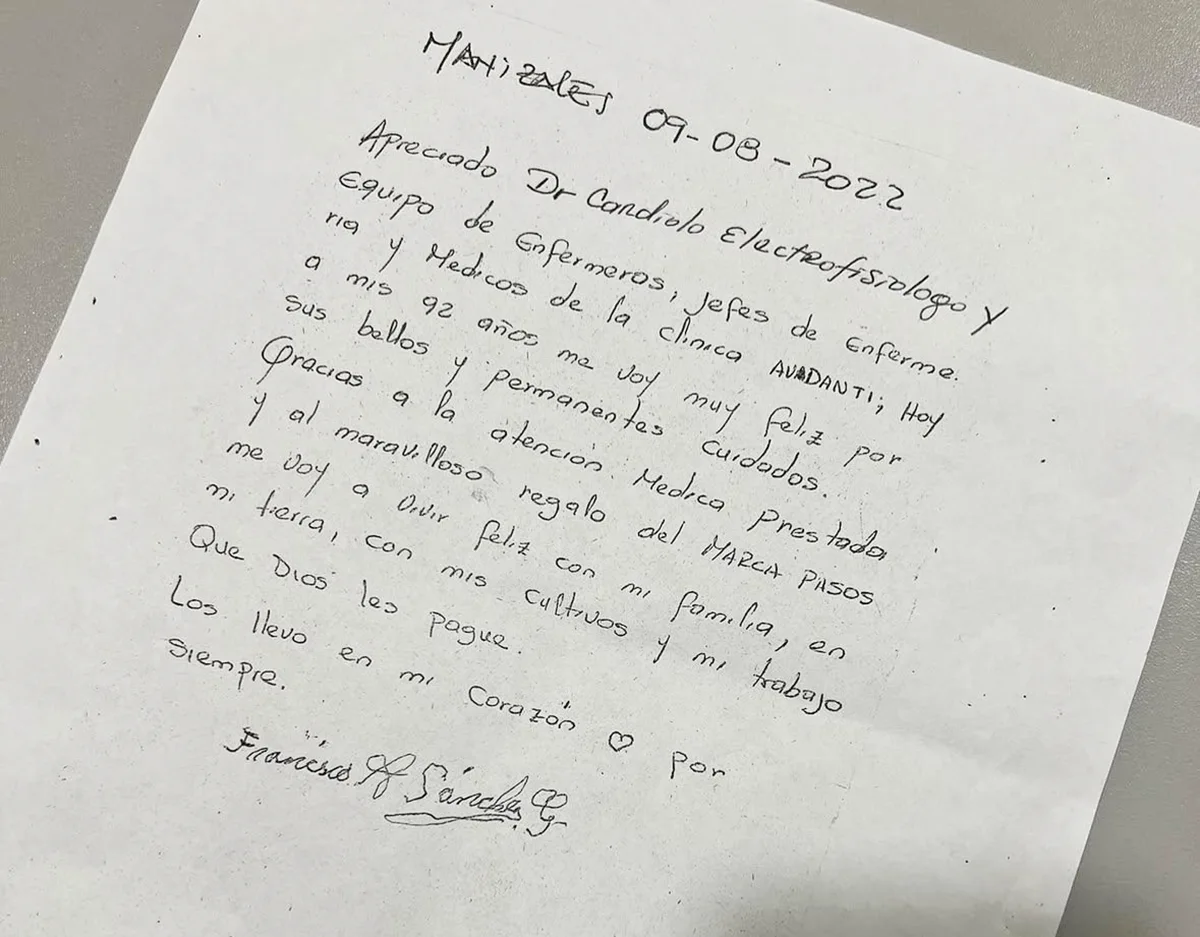 MANiZALES 09-08-2022
Apreciado Dr Cardiolo Electrofisiologo y
Equipo de Enfermeros, Jefes de Enferme.
ria y Medicos de la clinica AVADANTI; Hoy
a mis 92 años me voy muy feliz por
sus bellos y permanentes cuidados.
Gracias a la atención Medica Prestada
y al maravilloso regalo del MARCA PASOS
me voy a vivir feliz con mi familia, en
mi tierra, con mis cultivos y mi trabajo
Que Dios les pague.
Los llevo en mi Corazón ♡ por
siempre.
Francisco A Sánchez G